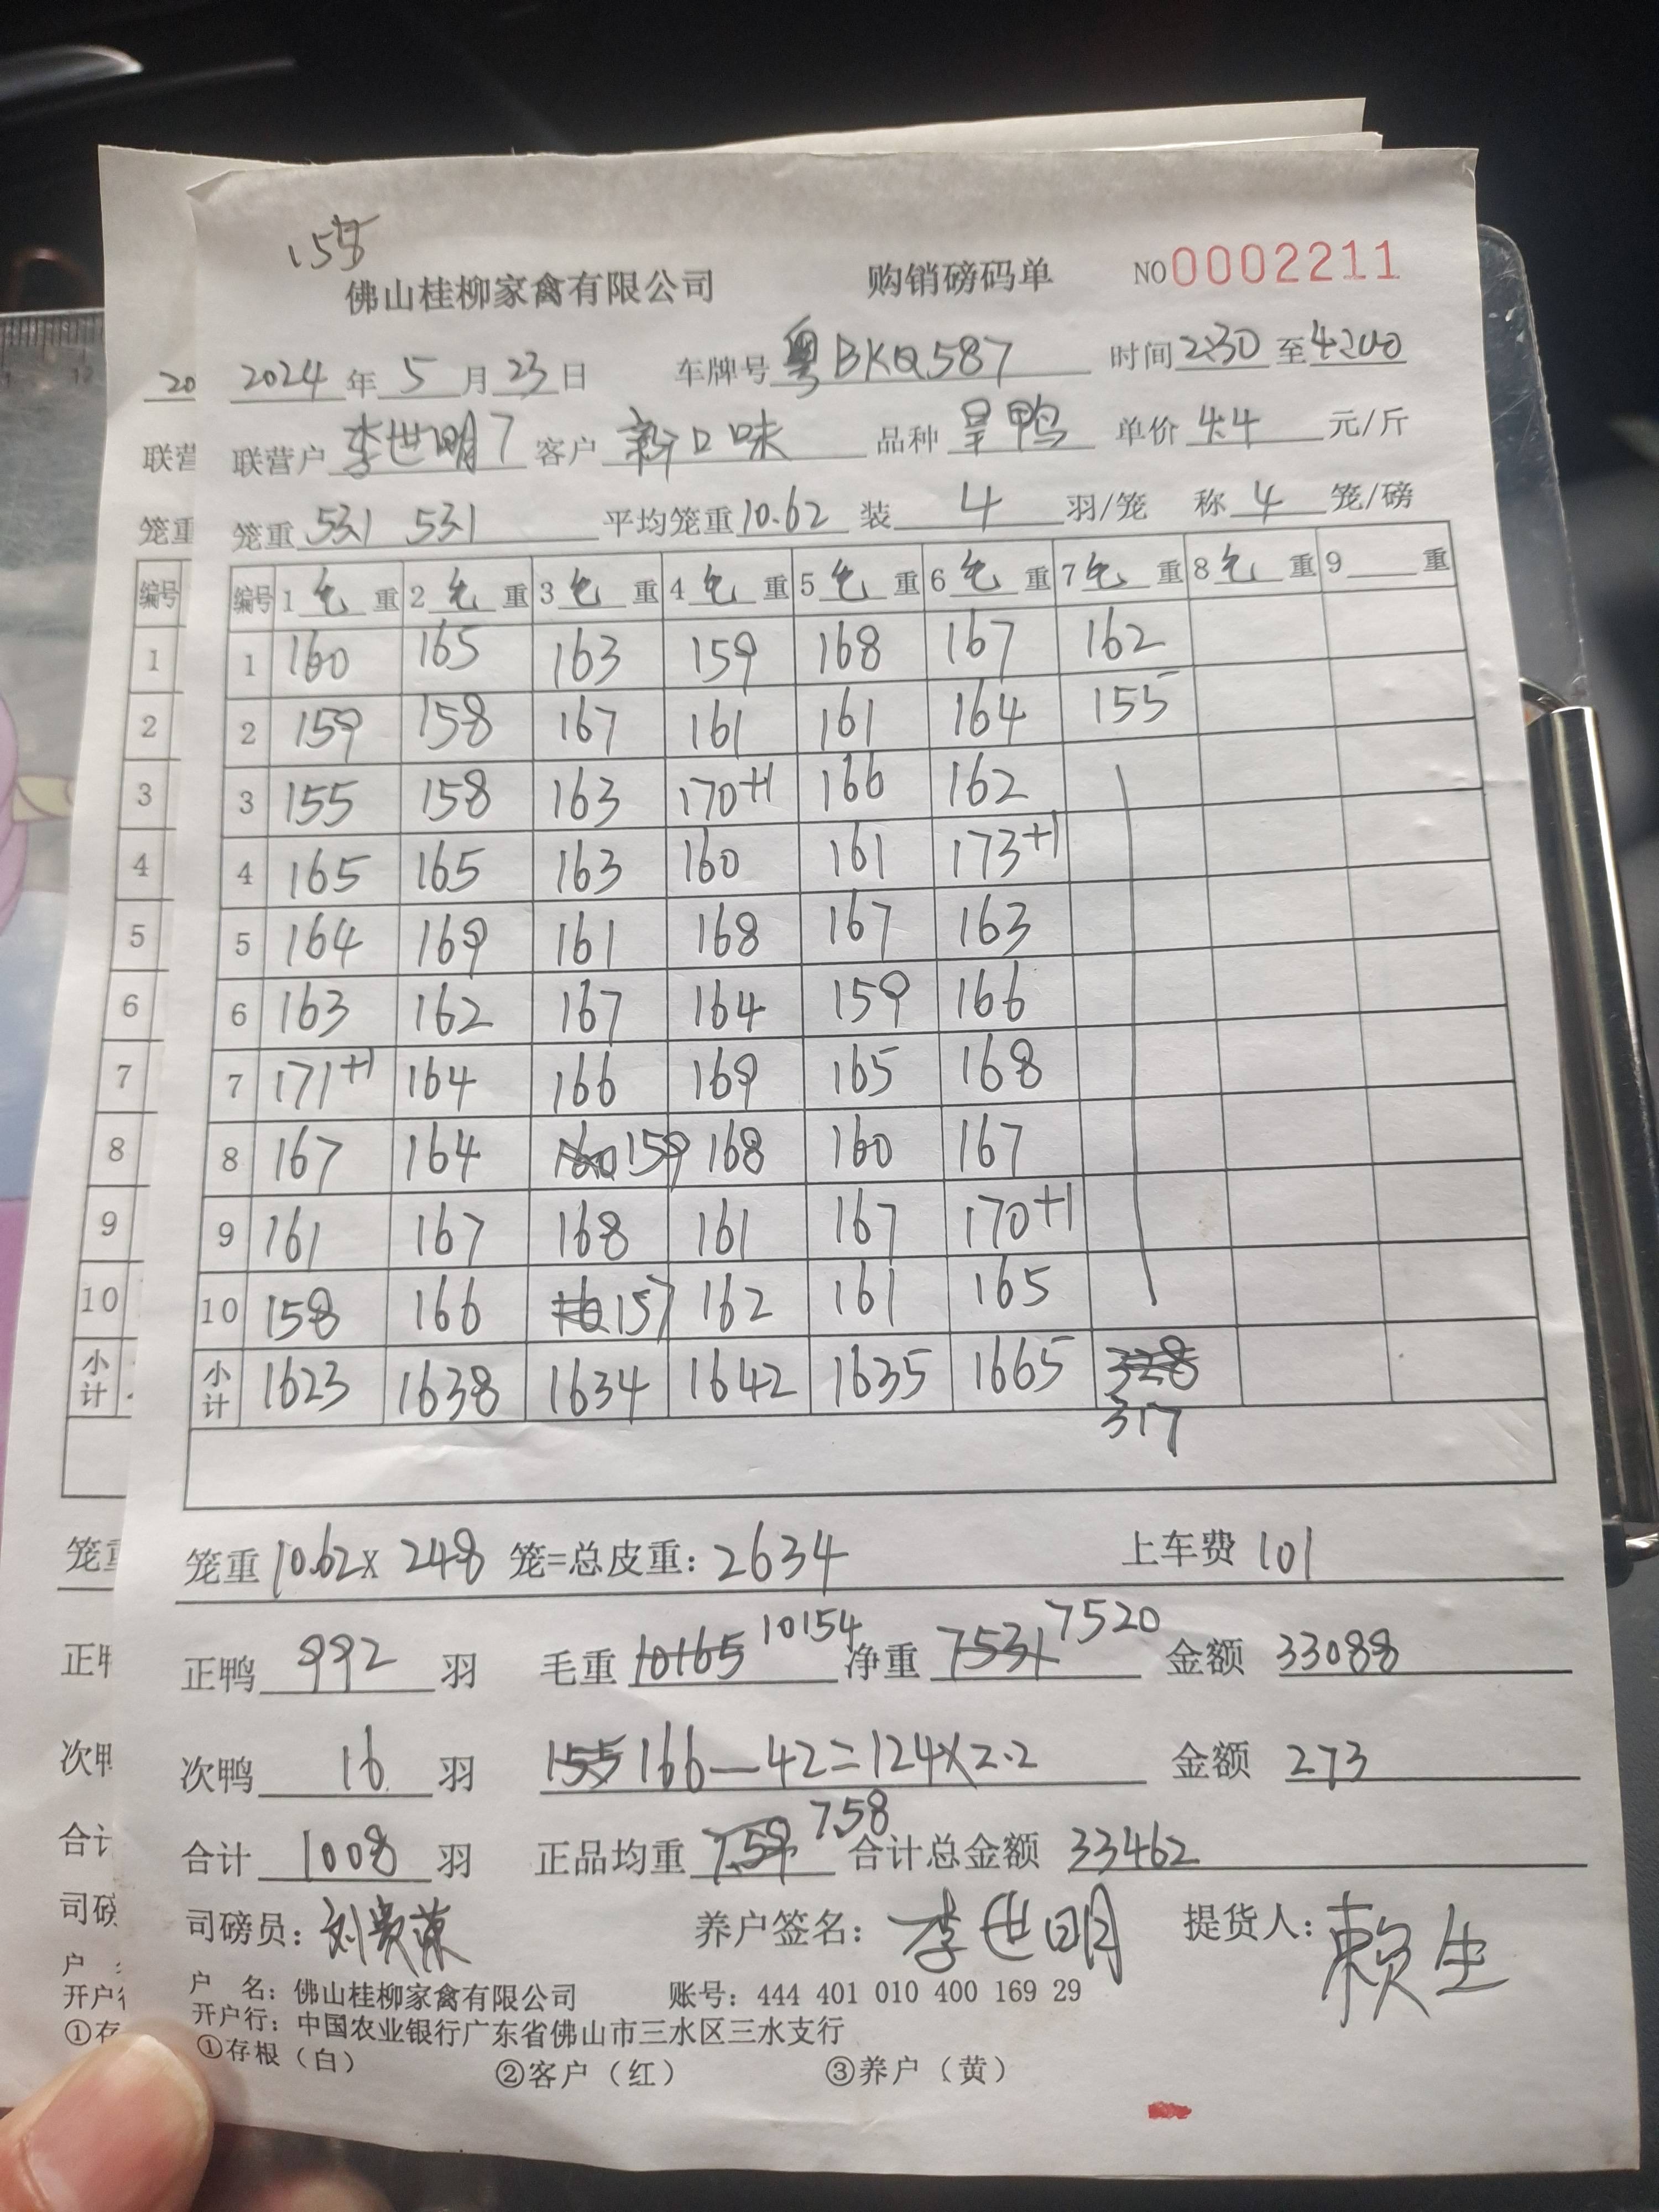 158
佛山桂柳家禽有限公司 购销磅码单 NO0002211
2024年5月23日 车牌号粤BKQ587 时间2:30至4:00
联营户李世明7 客户新口味 品种 单价4.4元/斤
笼重531 531 平均笼重10.62 装4羽/笼 称4笼/磅
编号 1毛重 2毛重 3毛重 4毛重 5毛重 6毛重 7毛重 8毛重 9重
1 160 165 163 159 168 167 162
2 159 158 167 161 161 164 155
3 155 158 163 170+1 166 162
4 165 165 163 160 161 173+1
5 164 169 161 168 167 163
6 163 162 167 164 159 166
7 171+1 164 166 169 165 168
8 167 164 160 159 168 160 167
9 161 167 168 161 167 170+1
10 158 166 157 162 161 165
小计 1623 1638 1634 1642 1635 1665 328
317
笼重10.62×248笼=总皮重:2634 上车费101
正鸭992羽 毛重10165 10154 净重7531 7520 金额33088
次鸭16羽 155 166-42=124×2.2 金额273
合计1008羽 正品均重7.59 7.58 合计总金额33462
司磅员: 养户签名:李世明 提货人:赖生
户 名:佛山桂柳家禽有限公司 账号:444 401 010 400 169 29
开户行:中国农业银行广东省佛山市三水区三水支行
①存根(白) ②客户(红) ③养户(黄)